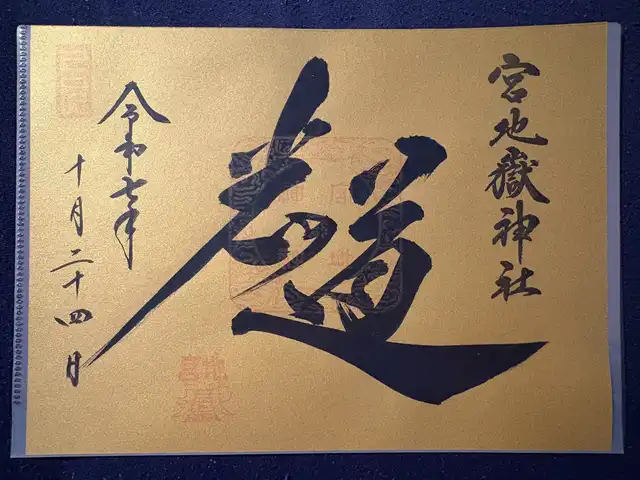 宮地嶽神社
光の道
令和七年
十月二十四日